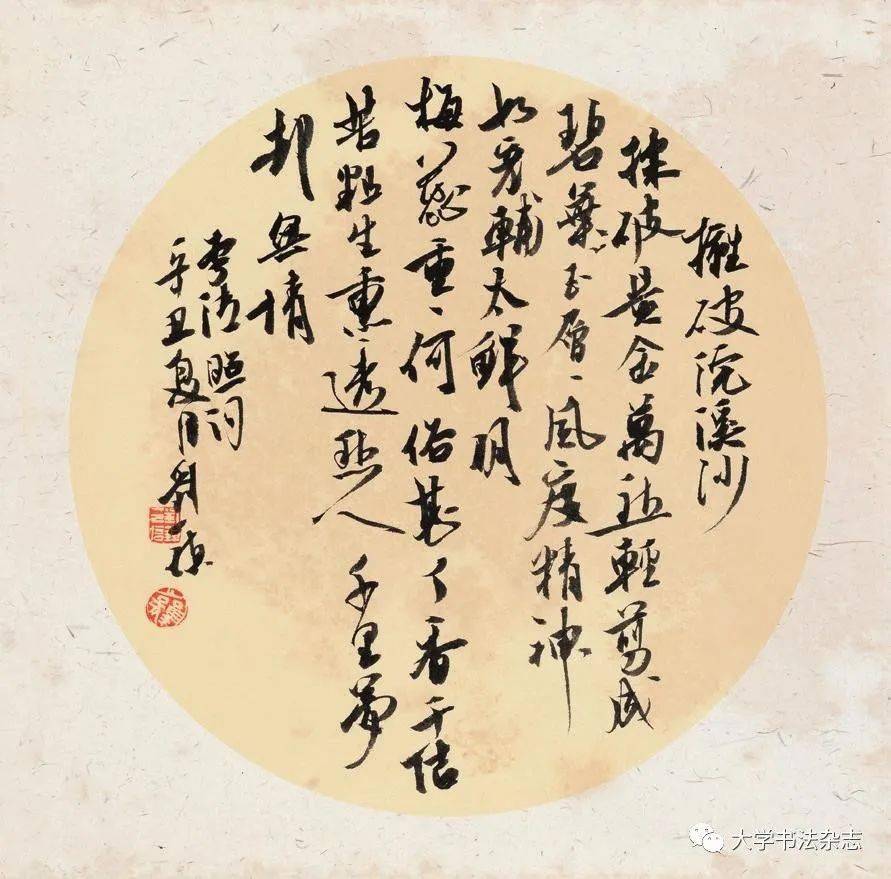 攤破浣溪沙
揉破黄金萬點輕剪成
碧葉玉層〻風度精神
如彦輔太鮮明
梅蕊重〻何俗甚丁香千结
苦粗生熏透愁人千里夢
却無情
李清照词
辛丑夏月
大学书法杂志